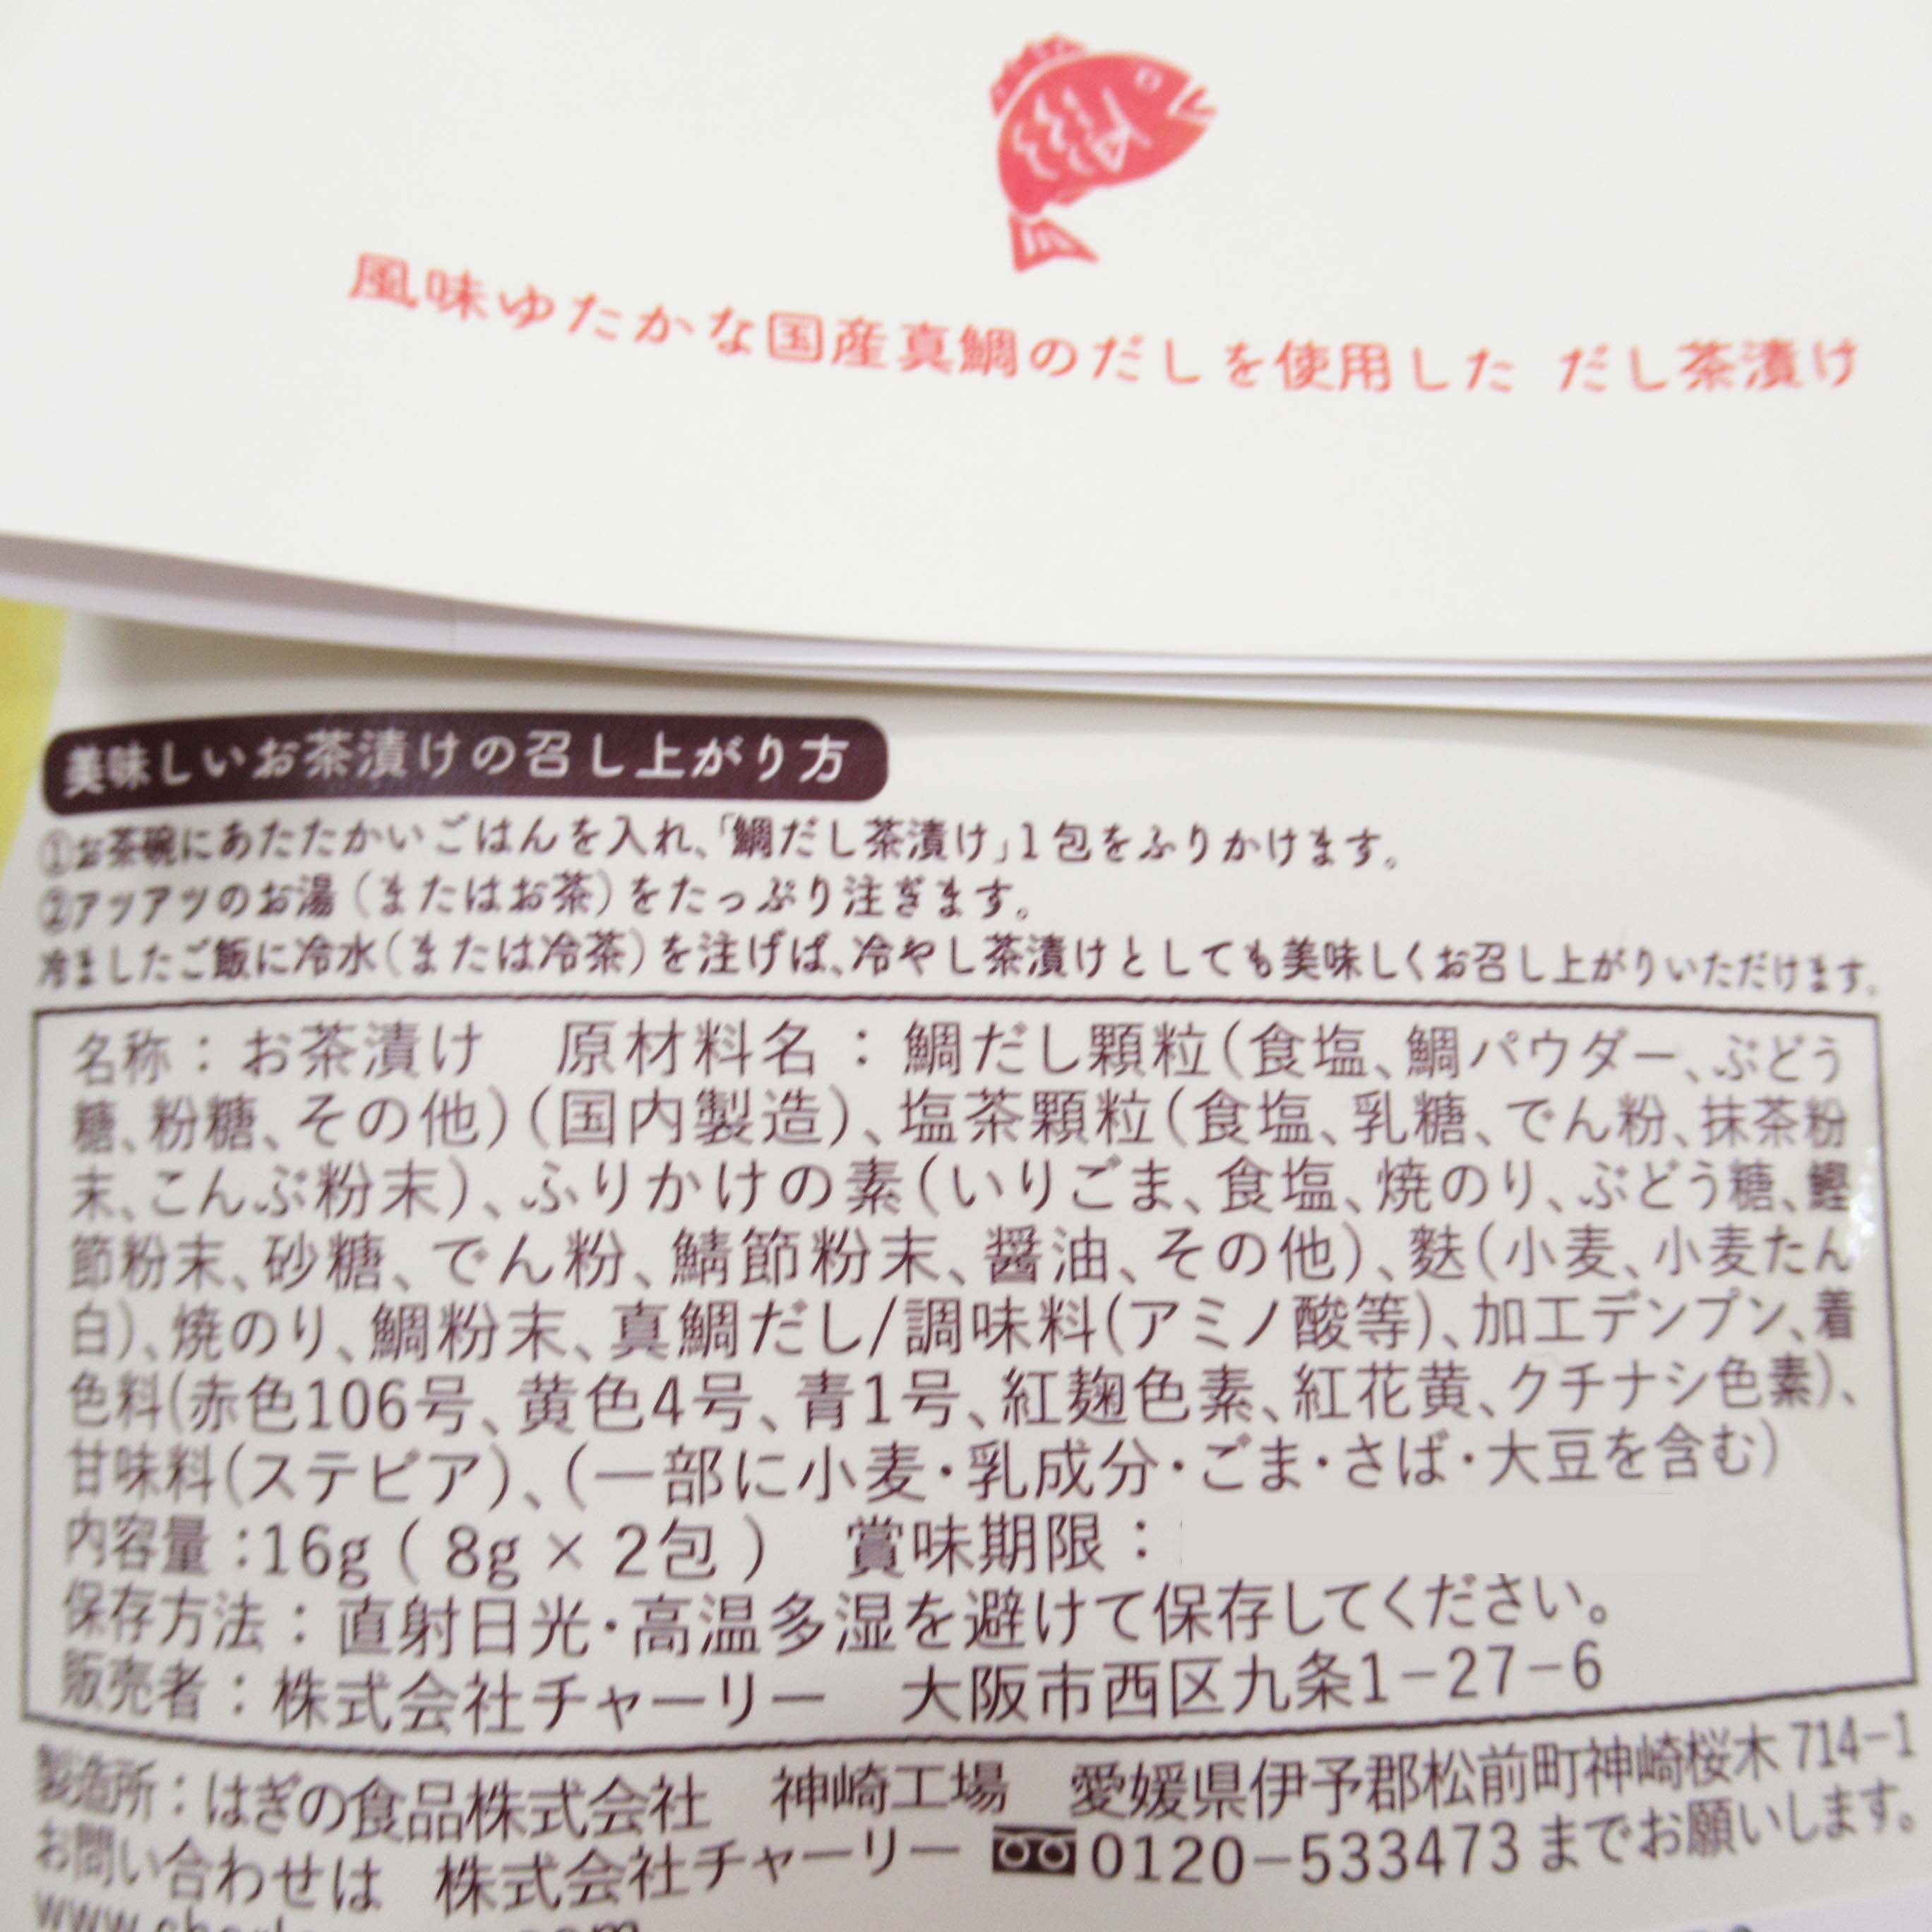 風味ゆたかな国産真鯛のだしを使用した だし茶漬け
美味しいお茶漬けの召し上がり方
①お茶碗にあたたかいごはんを入れ、「鯛だし茶漬け」1包をふりかけます。
②アツアツのお湯(またはお茶)をたっぷり注ぎます。
冷ましたご飯に冷水(または冷茶)を注げば、冷やし茶漬けとしても美味しくお召し上がりいただけます。
名称:お茶漬け 原材料名:鯛だし顆粒(食塩、鯛パウダー、ぶどう
糖、粉糖、その他)(国内製造)、塩茶顆粒(食塩、乳糖、でん粉、抹茶粉
末、こんぶ粉末)、ふりかけの素(いりごま、食塩、焼のり、ぶどう糖、鰹
節粉末、砂糖、でん粉、鯖節粉末、醤油、その他)、麩(小麦、小麦たん
白)、焼のり、鯛粉末、真鯛だし/調味料(アミノ酸等)、加工デンプン、着
色料(赤色106号、黄色4号、青1号、紅麹色素、紅花黄、クチナシ色素)、
甘味料(ステビア)、(一部に小麦・乳成分・ごま・さば・大豆を含む)
内容量:16g(8g×2包) 賞味期限:
保存方法:直射日光・高温多湿を避けて保存してください。
販売者:株式会社チャーリー 大阪市西区九条1-27-6
製造所:はぎの食品株式会社 神崎工場 愛媛県伊予郡松前町神崎桜木 714-1
お問い合わせは 株式会社チャーリー 0120-533473までお願いします。